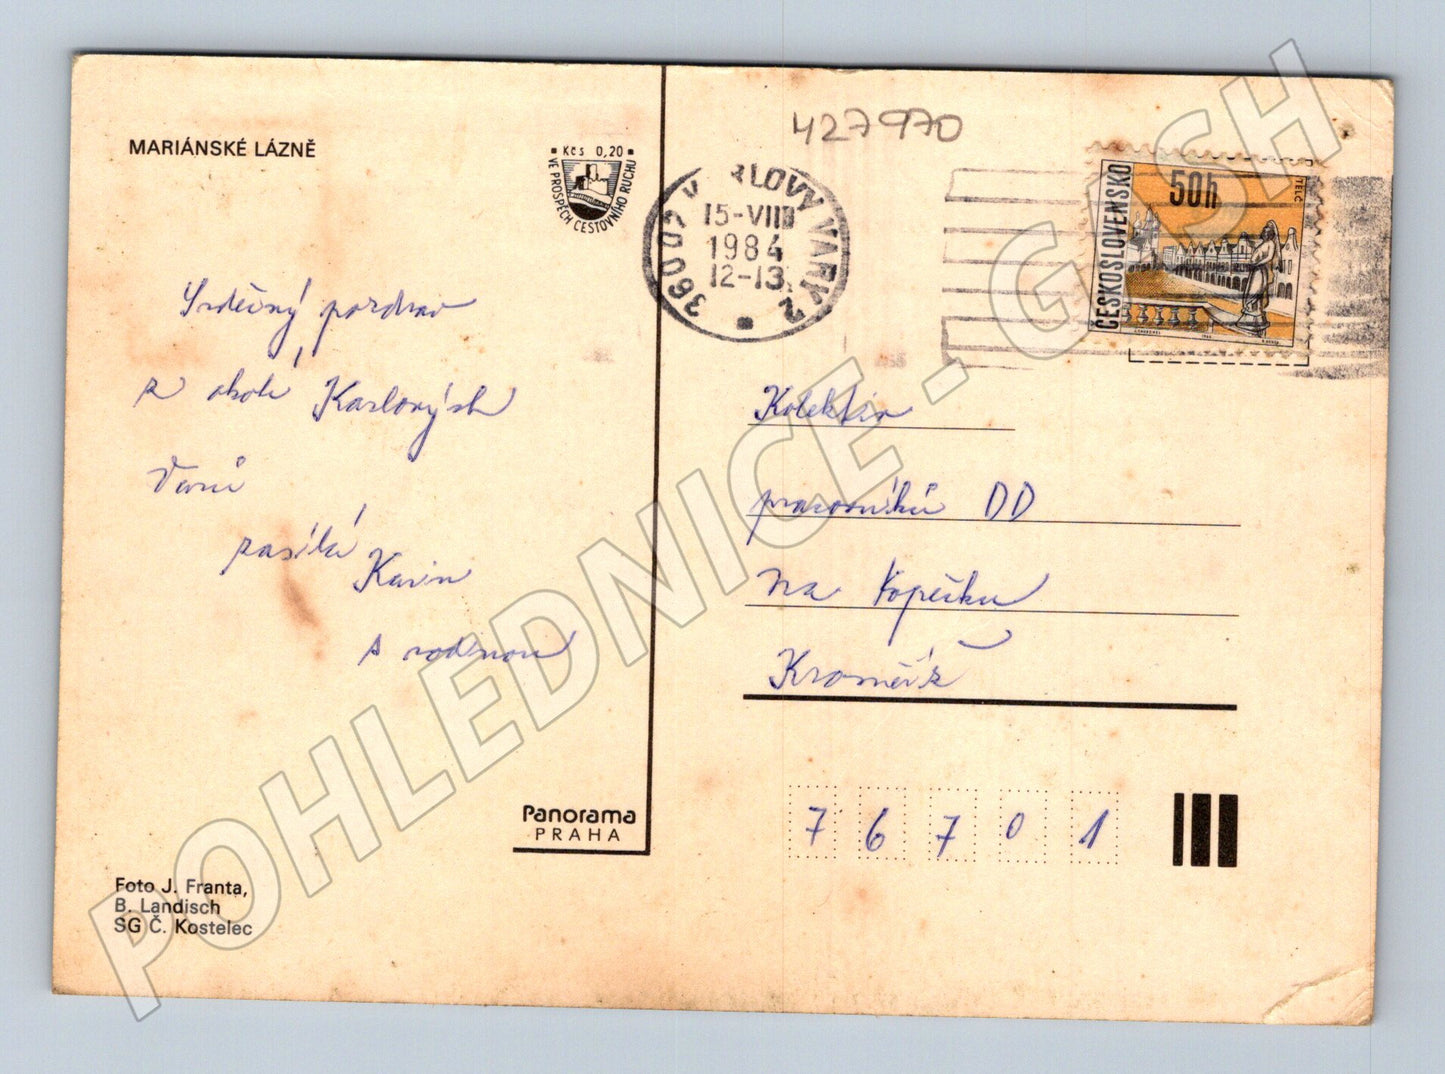 427970
MARIÁNSKÉ LÁZNĚ
Kčs 0,20
VE PROSPĚCH CESTOVNÍHO RUCHU
360 02 KARLOVY VARY 2
15-VIII
1984
12-13
ČESKOSLOVENSKO
50h
TELČ
Srdečný pozdrav
z okolí Karlových
Varů
zasílá
Karin
s rodinou
Kolektiv
pracovníků DD
na Kopečku
Kroměříž
76701
Panorama
PRAHA
Foto J. Franta,
B. Landisch
SG Č. Kostelec
POHLEDNICE - GASH